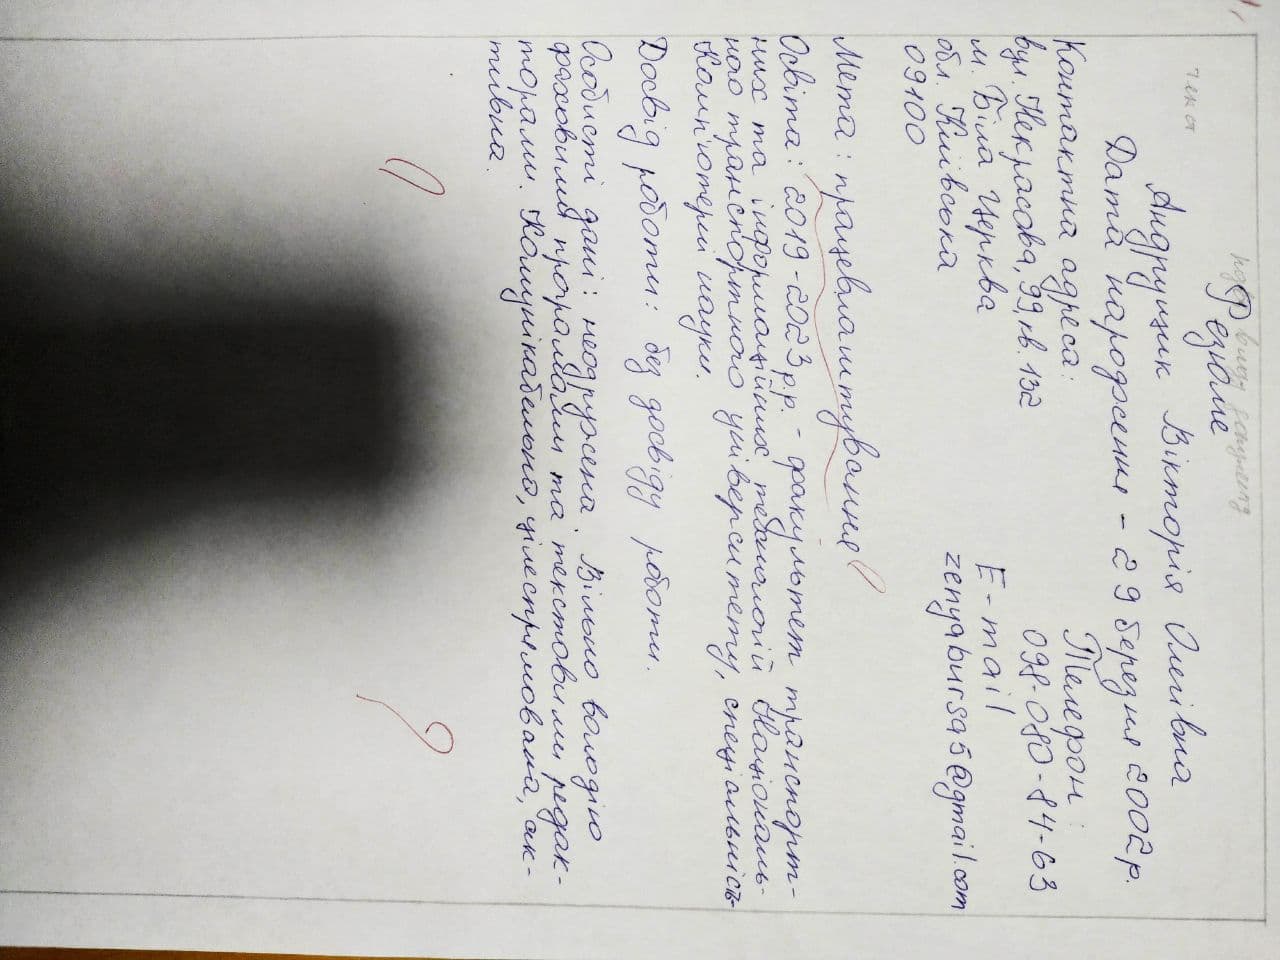 назва виду документу
Резюме
текст
Андрущик Вікторія Олегівна
Дата народження - 29 березня 2002р.
Контактна адреса:
вул. Некрасова, 99, кв. 132
м. Біла Церква
обл. Київська
09100
Телефон:
098-080-84-63
E-mail
zenyabursa5@gmail.com
Мета: працевлаштування
Освіта: 2019-2023р.р. - факультет транспорт-
них та інформаційних технологій Національ-
ного транспортного університету, спеціальність-
Комп'ютерні науки.
Досвід роботи: без досвіду роботи.
Особисті дані: неодружена. Вільно володію
фаховими програмами та текстовими редак-
торами. Комунікабельна, цілеспрямована, ак-
тивна.